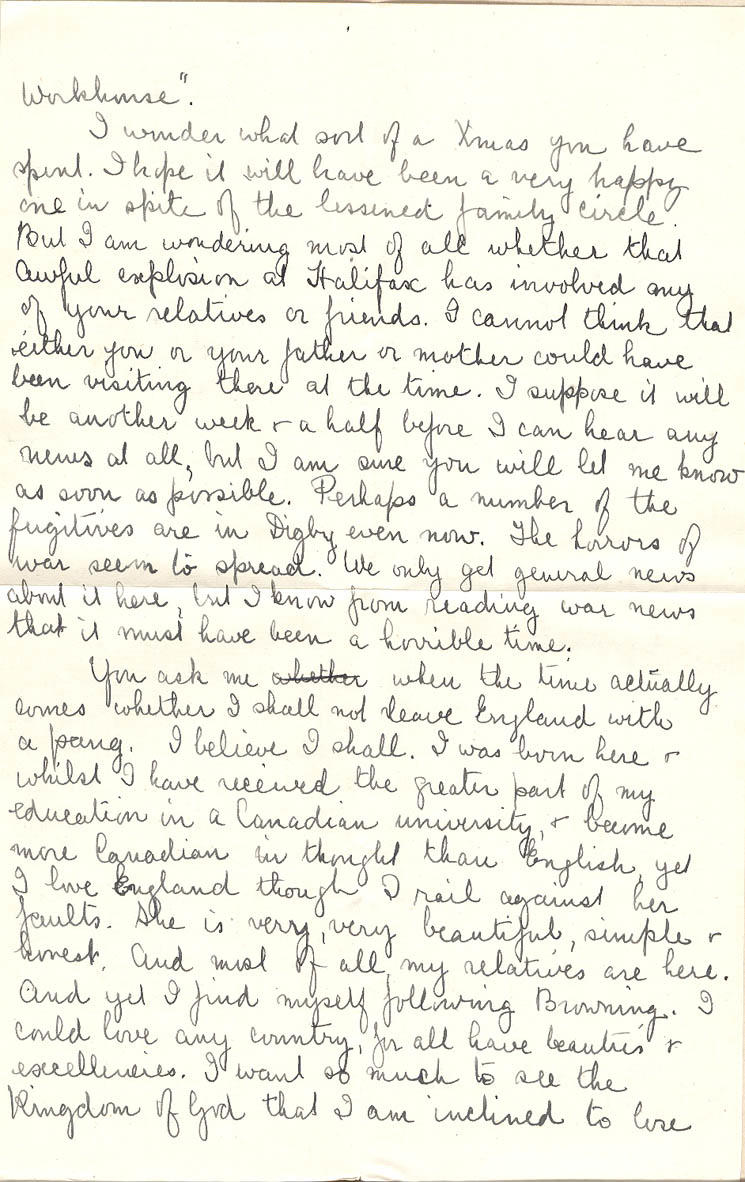 Workhouse".
I wonder what sort of a Xmas you have
spent. I hope it will have been a very happy
one in spite of the lessened family circle.
But I am wondering most of all whether that
awful explosion at Halifax has involved any
of your relatives or friends. I cannot think that
either you or your father or mother could have
been visiting there at the time. I suppose it will
be another week & a half before I can hear any
news at all, but I am sure you will let me know
as soon as possible. Perhaps a number of the
fugitives are in Digby even now. The horrors of
war seem to spread. We only get general news
about it here, but I know from reading war news
that it must have been a horrible time.
You ask me whether when the time actually
comes whether I shall not leave England with
a pang. I believe I shall. I was born here &
whilst I have received the greater part of my
education in a Canadian university, & become
more Canadian in thought than English, yet
I love England though I rail against her
faults. She is very, very beautiful, simple &
honest. And most of all, my relatives are here.
And yet I find myself following Browning. I
could love any country, for all have beauties &
excellencies. I want so much to see the
Kingdom of God that I am inclined to lose